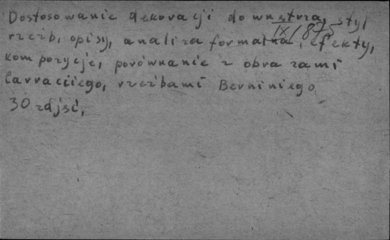 Dostosowanie dekoracji do wnętrza, → styl
IX/87
rzeźb, opisy, analiza formalna, efekty,
kompozycje, porównanie z obrazami
Carracciego, rzeźbami Berniniego
30 zdjęć,